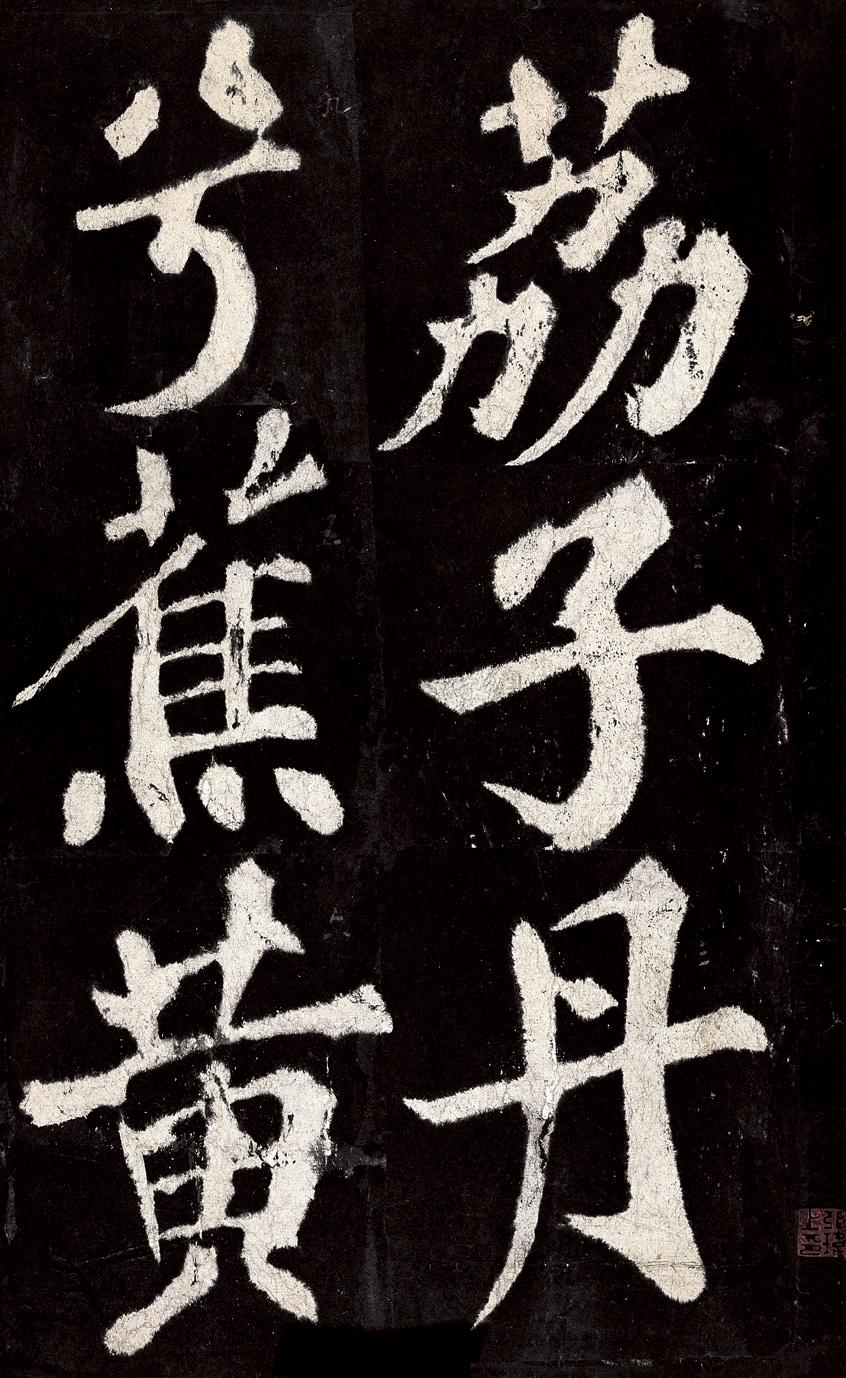 荔子丹
兮蕉黄